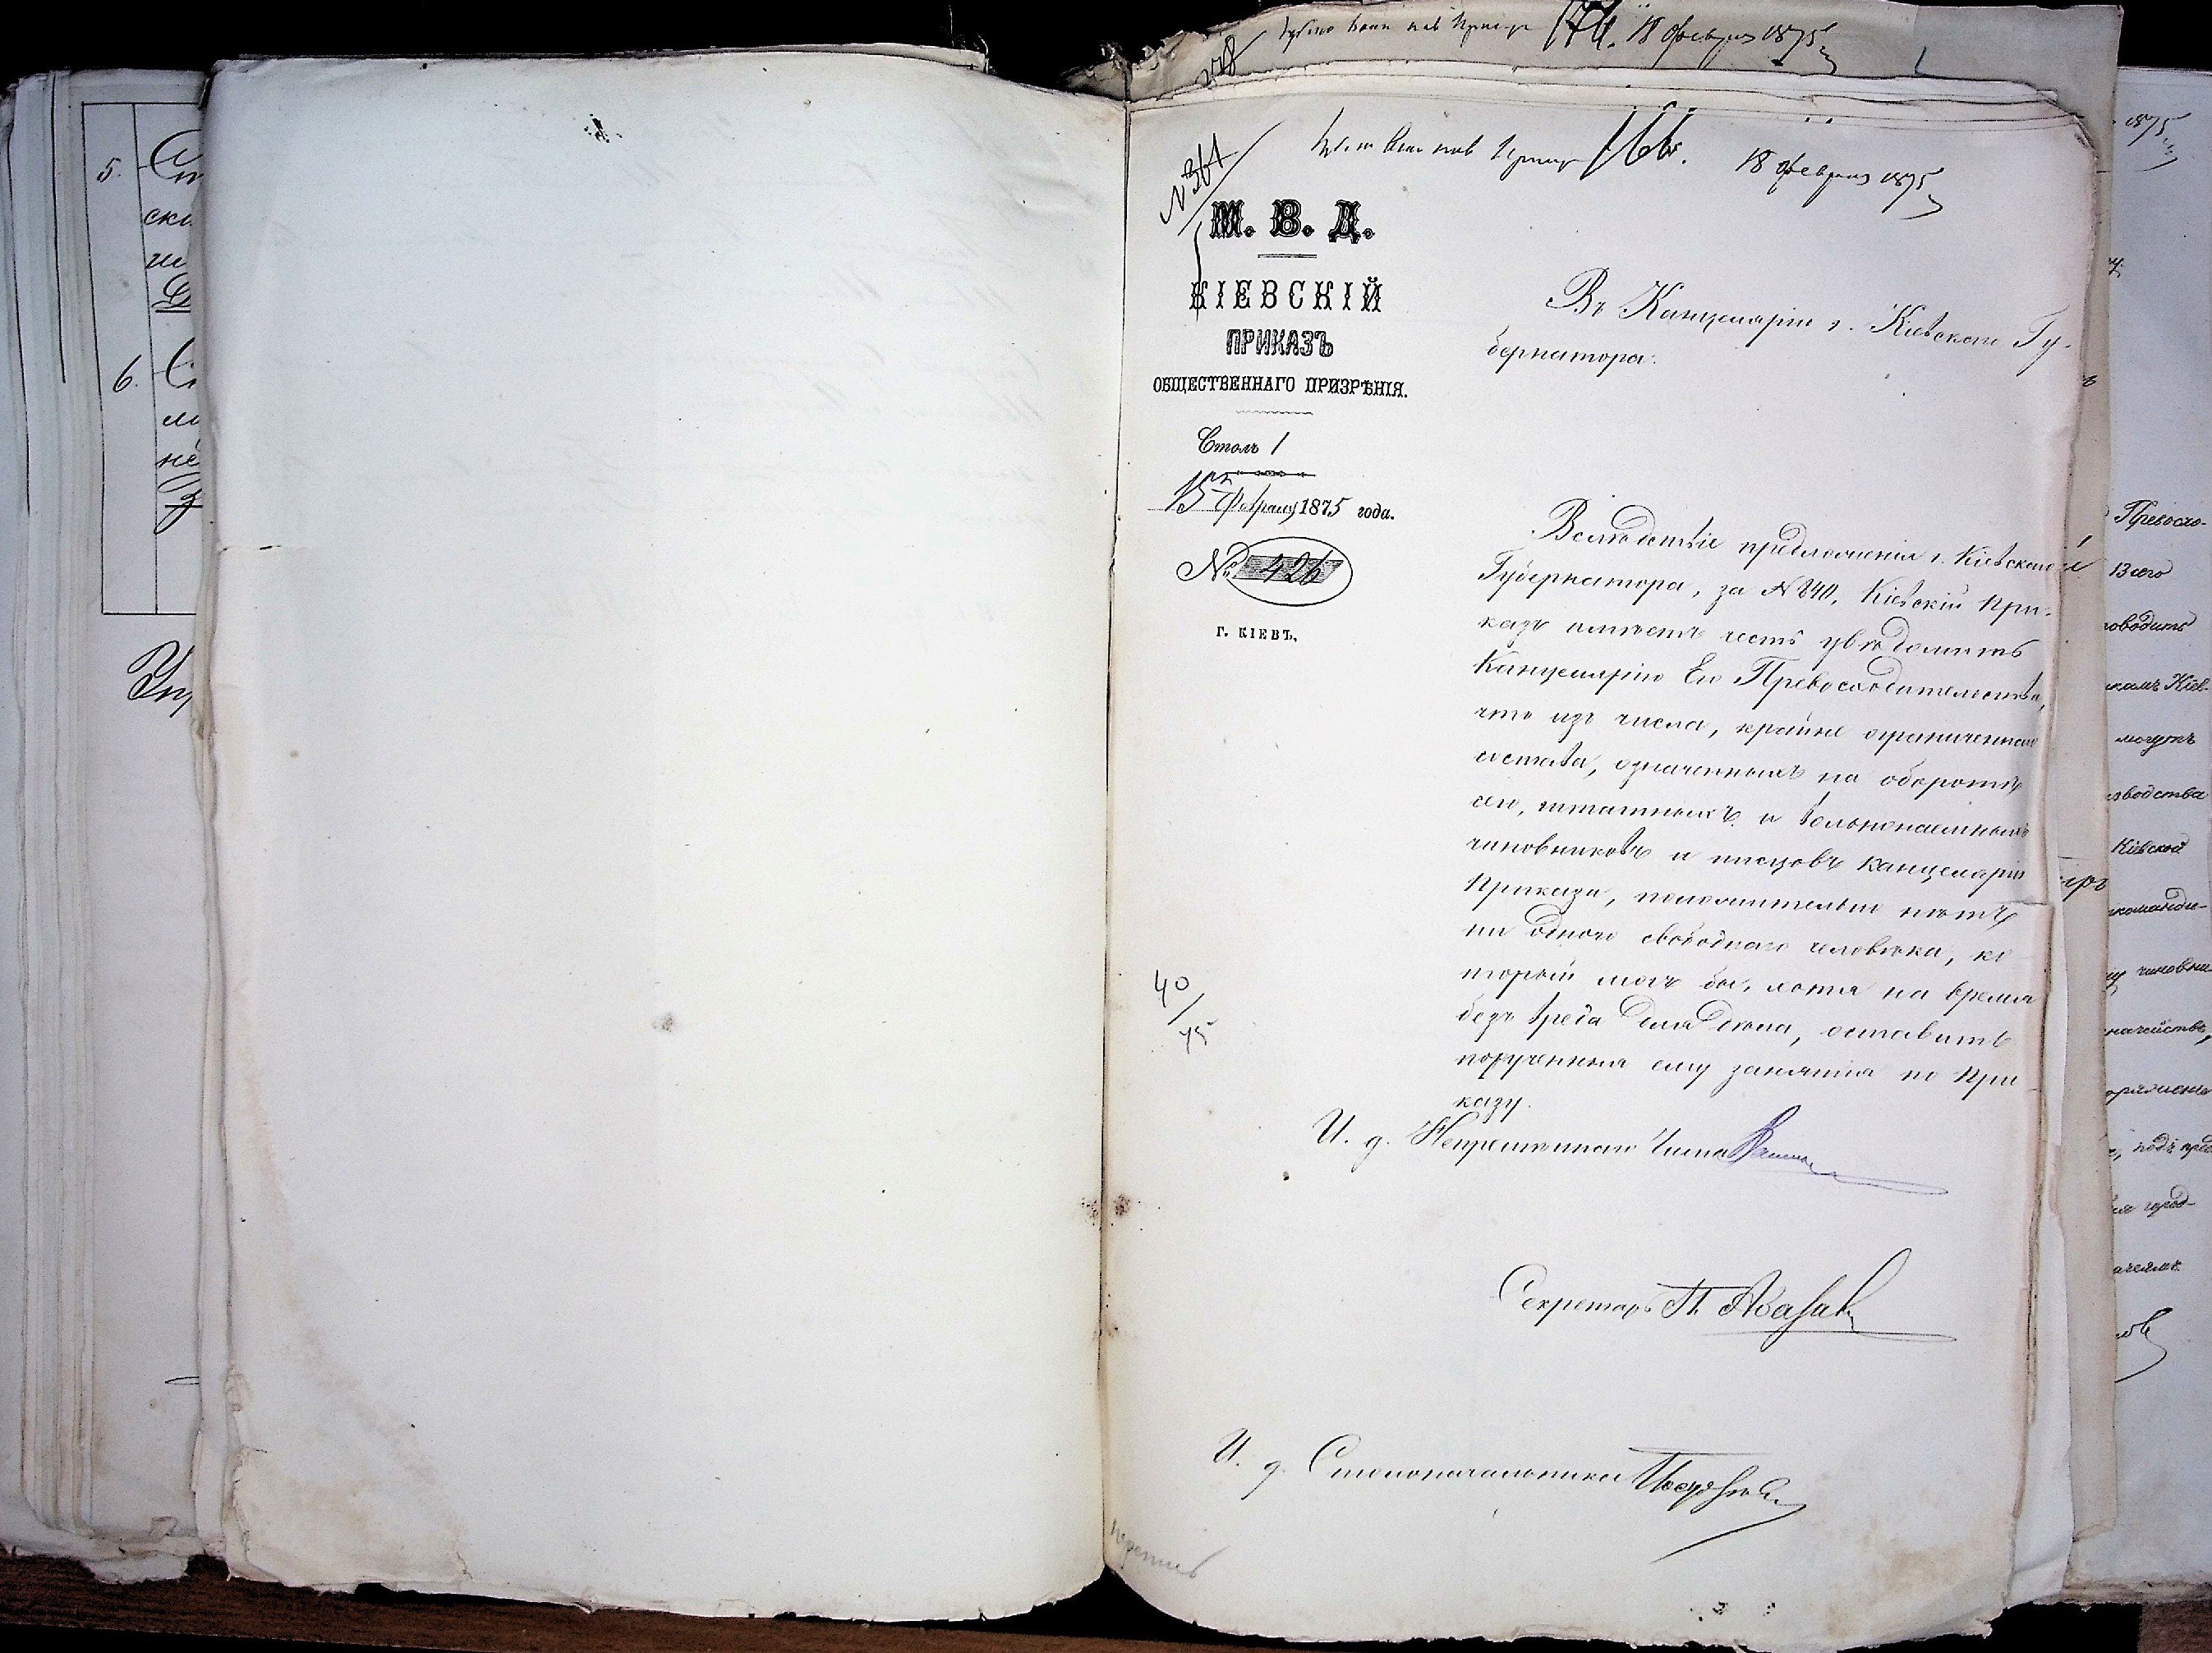 5.
6.
174. 18 Февраля 1875
248
№ 361
166. 18 Февраля 1875
М. В. Д.
КІЕВСКІЙ
ПРИКАЗЪ
ОБЩЕСТВЕННАГО ПРИЗРѢНІЯ.
Столъ 1
15 Февраля 1875 года.
№ 426
Г. КІЕВЪ,
Въ Канцелярію г. Кіевскаго Гу-
бернатора.
Вслѣдствіе предложенія г. Кіевскаго
Губернатора, за № 840, Кіевскій При-
казъ имѣетъ честь увѣдомить
Канцелярію Его Превосходительства,
что изъ числа, крайне ограниченнаго
состава, означенныхъ на оборотѣ
сего, штатныхъ и вольнонаемныхъ
чиновниковъ и писцовъ канцеляріи
Приказа, положительно нѣтъ
ни одного свободнаго человѣка, ко-
торый могъ бы, хотя на время
безъ вреда для дѣла, оставить
порученныя ему занятія по При-
казу.
40/75
И. д. Непремѣннаго Члена
Секретарь П.
И. д. Столоначальника
1875
Превосхо-
Всего
оводить
камъ Кіев-
могутъ
зводства
Кіевской
командi-
чиновни-
начействѣ,